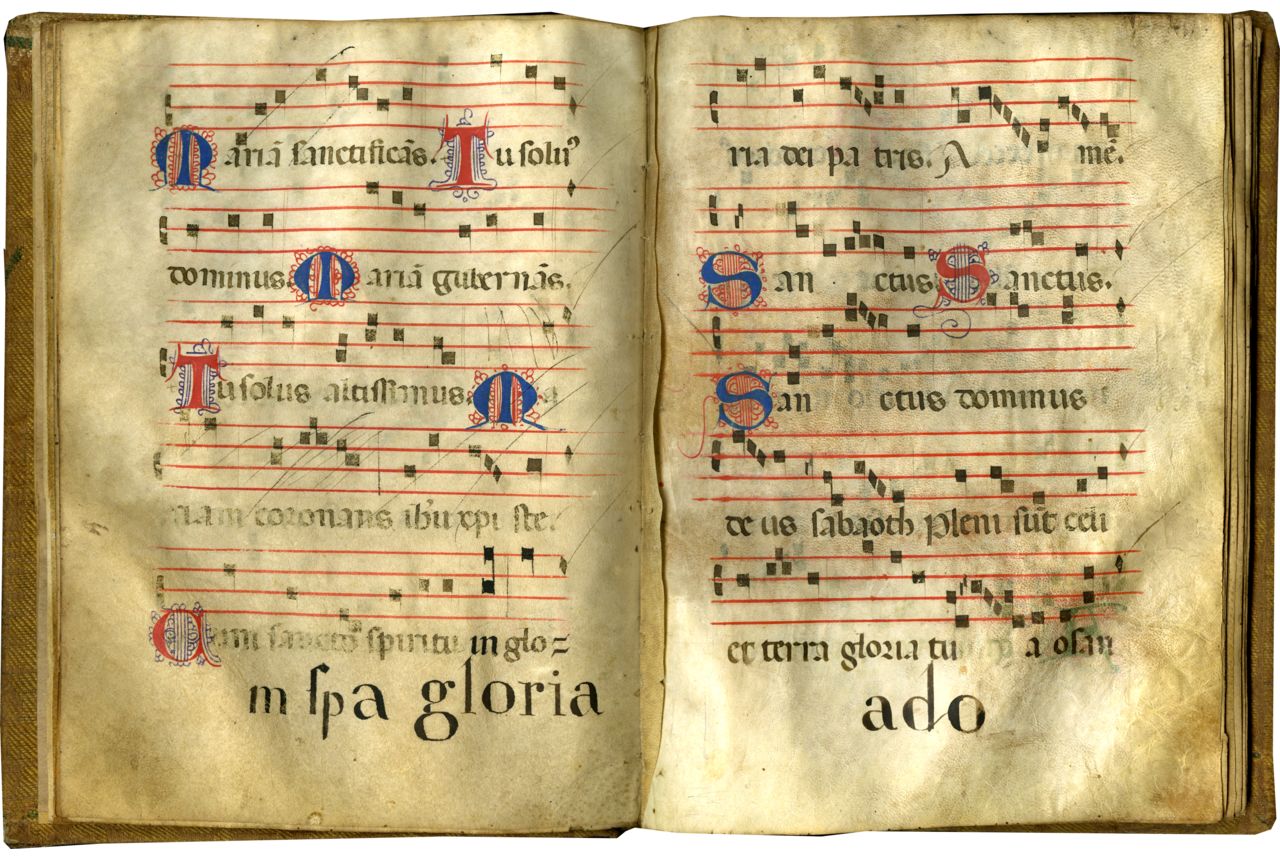 Mariā sanctificās. Tu solus
dominus. Mariā gubernās.
Tu solus altissimus. Ma
riam coronans ihu xpi ste.
Cum sancto spiritu in glo
m spa gloria
ria dei pa tris. A mē.
San ctus. Sanctus.
San ctus dominus
de us sabaoth Pleni sūt celi
et terra gloria tu a osan
ado